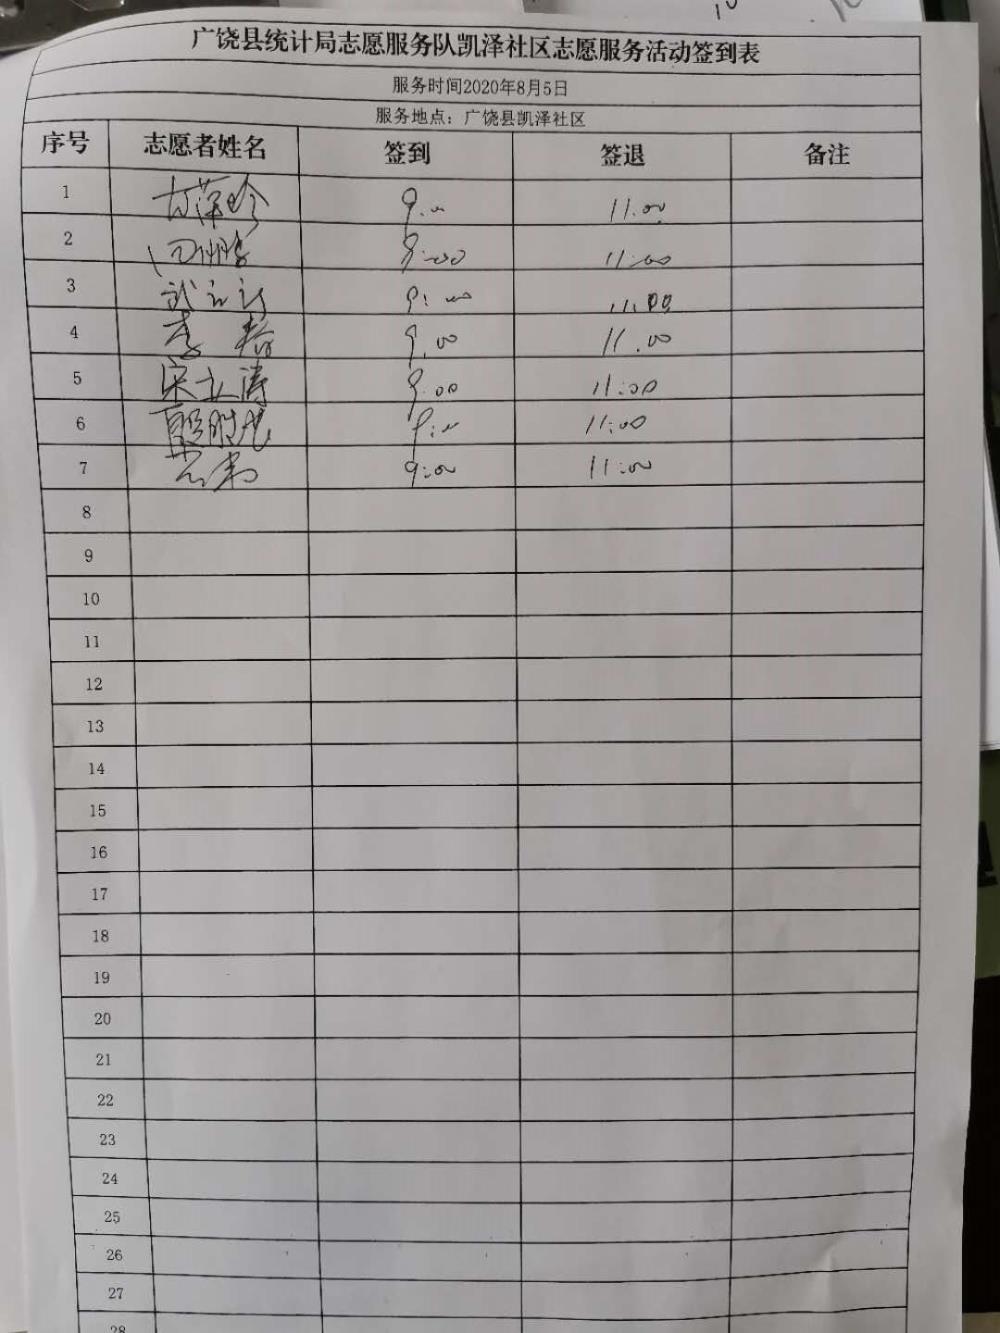 广饶县统计局志愿服务队凯泽社区志愿服务活动签到表
服务时间2020年8月5日
服务地点：广饶县凯泽社区
序号 志愿者姓名 签到 签退 备注
1 9:00 11:00
2 9:00 11:00
3 9:00 11:00
4 李 9:00 11:00
5 宋立涛 9:00 11:00
6 殷胜龙 9:00 11:00
7 9:00 11:00
8
9
10
11
12
13
14
15
16
17
18
19
20
21
22
23
24
25
26
27
28